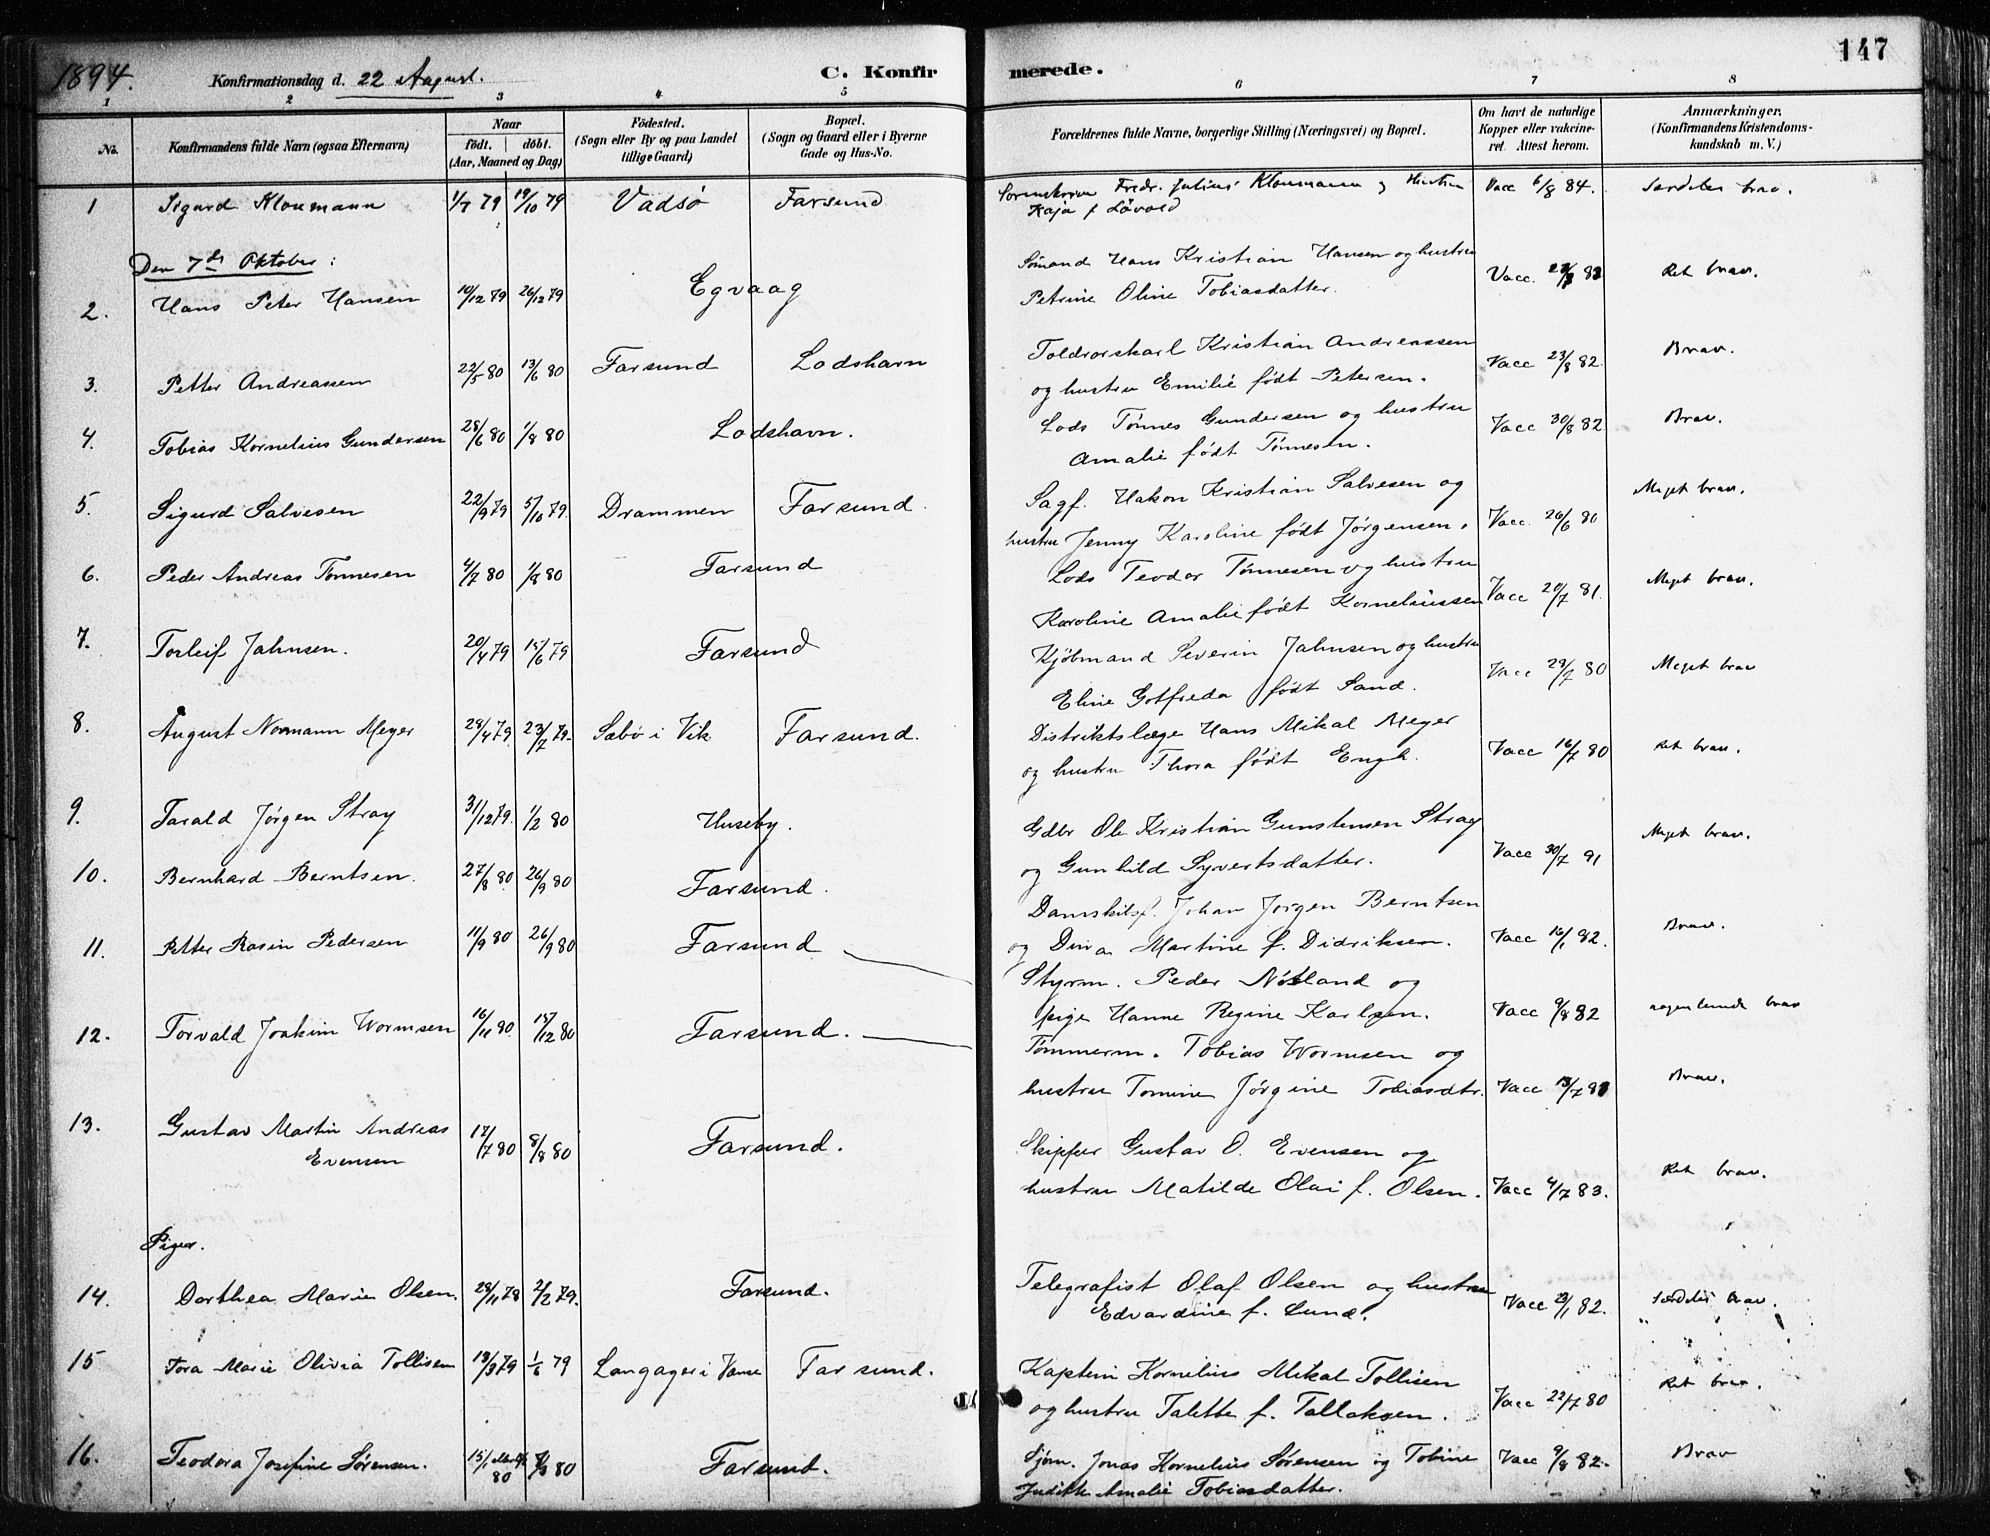 1894. Konfirmationsdag d. 22 August. C. Konfirmerede. 147
1 2 3 4 5 6 7 8
No. Konfirmandens fulde Navn (ogsaa Efternavn) Naar født. døbt. (Aar, Maaned og Dag) Fødested. (Sogn eller By og paa Landet tillige Gaard) Bopæl. (Sogn og Gaard eller i Byerne Gade og Hus-No. Forældrenes fulde Navne, borgerlige Stilling (Næringsvei) og Bopæl. Om havt de naturlige Kopper eller vakcineret. Attest herom. Anmærkninger. (Konfirmandens Kristendomskundskab m. V.)
1 Sigurd Kloumann 1/7 79 19/10 79 Vadsø Farsund Fredr. Julius Kloumann og Hustru Vacc 6/8 84. Særdeles brav.
Kaja f Løvold
Den 7de Oktober:
2. Hans Peter Hansen 10/12 79 26/12 79 Egvaag Sømand Hans Kristian Hansen og hustru Vacc. Ret brav.
Petrine Oline Tobiasdatter.
3. Petter Andreassen 22/5 80 13/6 80 Farsund Lodshavn Toldrorskarl Kristian Andreassen Vacc 23/8 82. Brav.
og hustru Emilie født Petersen.
4. Tobias Kornelius Gundersen 28/6 80 1/8 80 Lodshavn. Lods Tønnes Gundersen og hustru Vacc 30/8 82 Brav.
Amalie født Tønnesen.
5. Sigurd Salvesen 22/9 79 5/10 79. Drammen Farsund. Sagf. Hakon Kristian Salvesen og Vacc. 26/6 80 Meget brav.
hustru Jenny Karoline født Jørgensen.
6. Peder Andreas Tønnesen 4/7 80 1/8 80 Farsund Lods Teodor Tønnesen og hustru Vacc 20/7 81. Meget brav.
Karoline Amalie født Korneliussen
7. Torleif Jahnsen. 20/4 79 15/6 79 Farsund Kjøbmand Severin Jahnsen og hustru Vacc 29/7 80 Meget brav
Eline Gotfreda født Sand.
8. August Normann Meyer 29/4 79. 23/7 79. Sæbø i Vik Farsund. Distriktslæge Hans Mikal Meyer Vacc 16/7 80 Ret brav.
og hustru Thora født Engh.
9. Tarald Jørgen Stray 31/12 79. 1/2 80 Huseby. Gdbr Ole Kristian Gunstensen Stray Vacc 30/7 91 Meget brav.
og Gunhild Syvertsdatter.
10. Bernhard Berntsen. 27/8 80 26/9 80 Farsund. Damskibsf. Johan Jørgen Berntsen Vacc 16/1 82. Brav.
og Dina Martine f. Didriksen.
11. Petter Rasin Pedersen 11/9 80 26/9 80 Farsund Styrm. Peder Nøtland og Vacc 9/8 82 nogenlunde brav
pige Hanne Regine Karlsen.
12. Torvald Joakim Wormsen 16/11 80. 15/12 80 Farsund. Tømmerm. Tobias Wormsen og Brav.
hustru Tomine Jørgine Tobiasdtr. Vacc 13/7 81
13. Gustav Martin Andreas 17/7 80 8/8 80 Farsund. Skipper Gustav O. Evensen og Ret brav.
Evensen hustru Matilde Olai f. Olsen. Vacc 4/7 83.
Piger.
14. Dorthea Marie Olsen. 28/11 78 2/2 79. Farsund. Telegrafist Olaf Olsen og hustru Vacc 23/1 82. Særdeles brav.
Edvardine f. Lund.
15 Tora Marie Olivia Tollisen 13/3 79 1/6 79 Langager i Vanse Farsund. Kaptein Kornelius Mikal Tollisen Vacc 22/7 80 Ret brav.
og hustru Talette f. Tallaksen.
16. Teodora Josefine Sørensen. 15/1 80 Farsund. Sjøm. Jonas Kornelius Sørensen og Tobine Vacc 9/8 82. Brav
Judith Amalie Tobiasdatter.